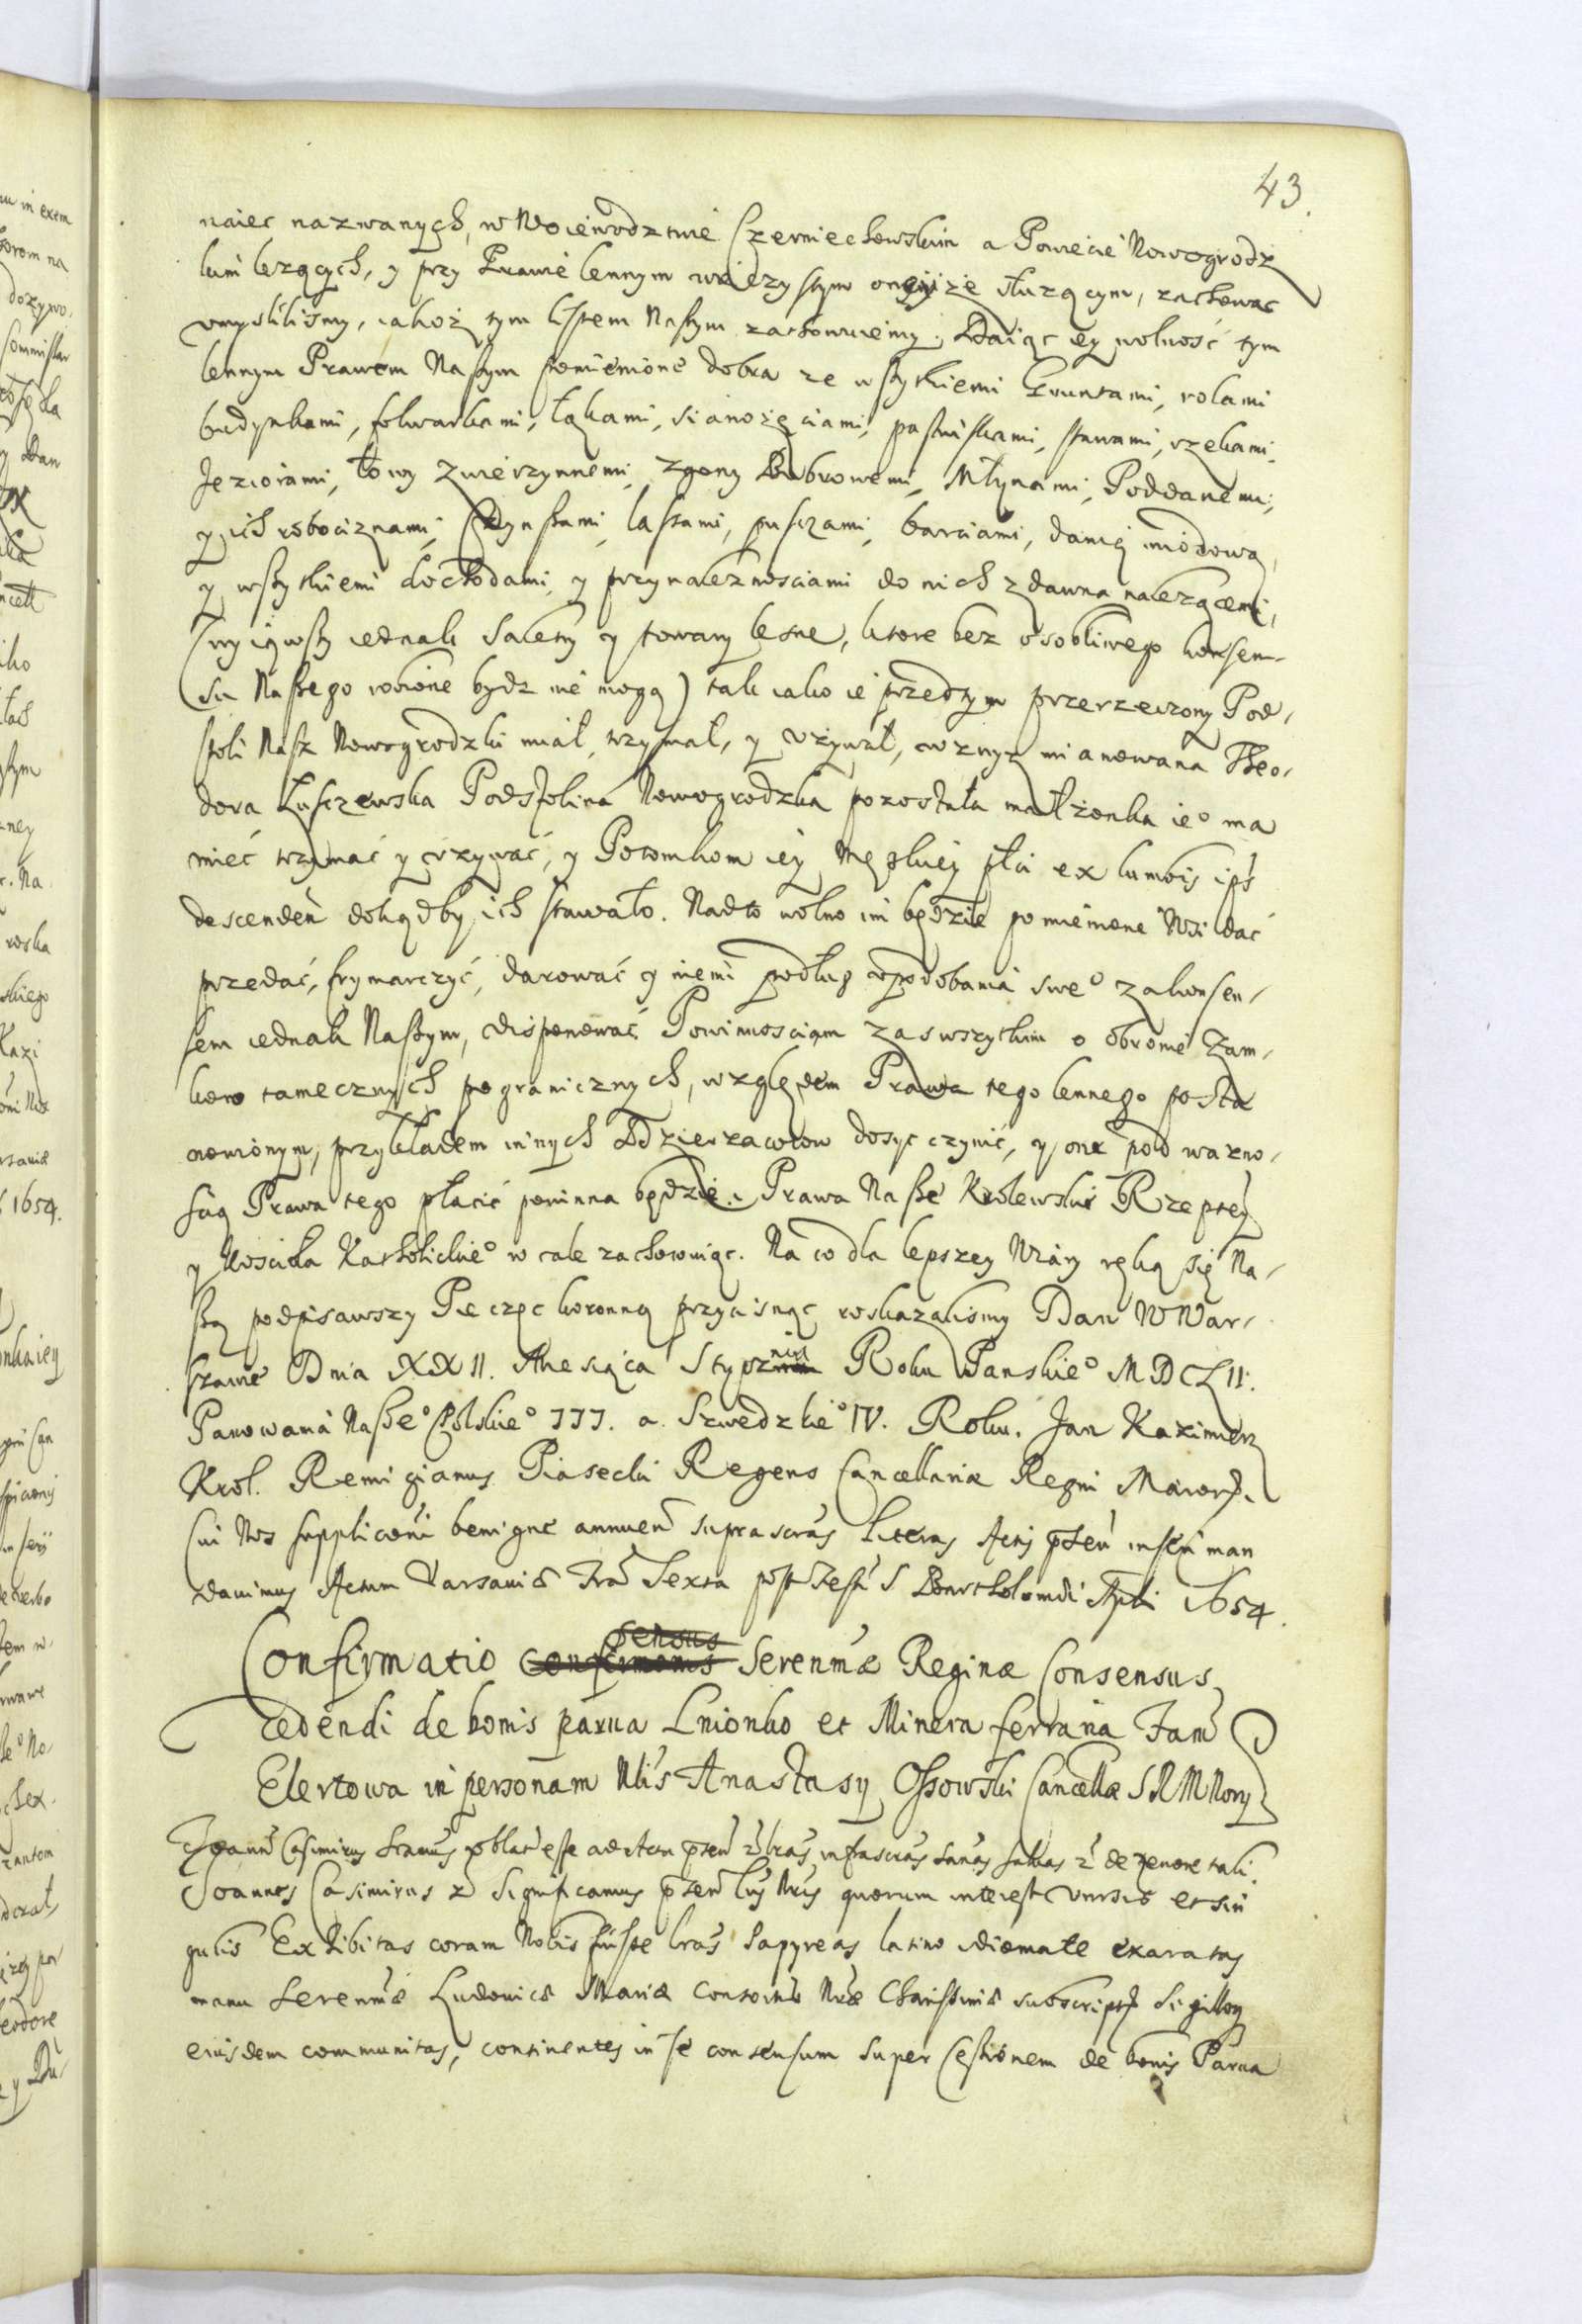 43.
naiec nazwanych, w Woiewodztwie Czerniechowskim a Powiecie Nowogrodz
kim lezących, y przy Prawie lennym wieczystym oneyże służącym, zachowac
vmyslilismy, iakoż tym listem Naszym zachowuiemy, Daiąc iey wolność tym
lennym Prawem Naszym pomienione dobra ze wszytkiemi Gruntami, rolami
budynkami, folwarkami, łąkami, sianożęciami, pastwiskami, stawami, rzekami,
Jeziorami, łowy zwierzynnemi, zgony Bobrowemi, Młynami, Poddanemi,
y ich robociznami, Czynszami, lassami, puszczami, barciami, danią miodową,
y wszytkiemi dochodami, y przynaleznosciami do nich zdawna nalezącemi,
(wyiąwszy iednak Saletry y towary lesne, ktore bez osobliwego konsen-
su Naszego robione bydz nie mogą) tak iako ie przedtym przerzeczony Pod-
stoli Nasz Nowogrodzki miał, trzymał, y vżywał, wzwyz mianowana Theo-
dora Łuszczewska Podstolina Nowogrodzka pozostała małżonka ie° ma
mieć trzymać y vżywać, y Potomkom iey Męskiey płci ex lumbis ips
descendeñ dokądby ich stawało. Nadto wolno im będzie pomienione Wsi dać
przedać, frymarczyć, darować y niemi podług vpodobania swe° zakonsen-
sem iednak Naszym, disponować. Powinnosciom zas wszytkim o obronie Zam-
kow tamecznych pogranicznych, względem Prawa tego lennego posta
nowionym, przykładem innych Dzierzawcow dosyc czynić, y one pod wazno-
scią Prawa tego płacić powinna będzie. Prawa Nasze Krolewskie Rzeptey
y Kosciła Katholickie° w cale zachowuiąc. Na co dla lepszey Wiary ręką się Na-
szą podpisawszy Pieczęc koronną przycisnąc roskazalismy Dan W War-
szawie Dnia XXII. Miesiąca Stycznia Roku Panskie° MDCLII.
Panowania Nasze° Polskie° III. a Szwedzkie° IV. Roku. Jan Kazimierz
Krol. Remigianus Piasecki Regens Cancellariæ Regni Maioris.
Cui Nos supplicõni benigne annueñ suprascrãs literas Actis pñseñ inseri man
davimus Actum Varsaviæ Fra Sexta post Festũ S Bartholomæi Apli 1654.
Confirmatio sensus Serenmæ Reginæ Consensus
cedendi de bonis parva Lnionko et Minera ferraria Fam
Elertowa in personam Nlis Anastasy Ossowski Cancellæ SRM Nory
Joann Casimirus
Joannes Casimirus Significamus quorum interest et sin
gulis Exhibitas coram Nobis fuisse lras Papyreas latino idiomate exaratas
manu Serenmæ Ludovicæ Mariæ Consortis Nræ Charissimæ subscriptas Sigilloq
eiusdem communitas, continentes in se consensum super Cessionem de bonis Parva